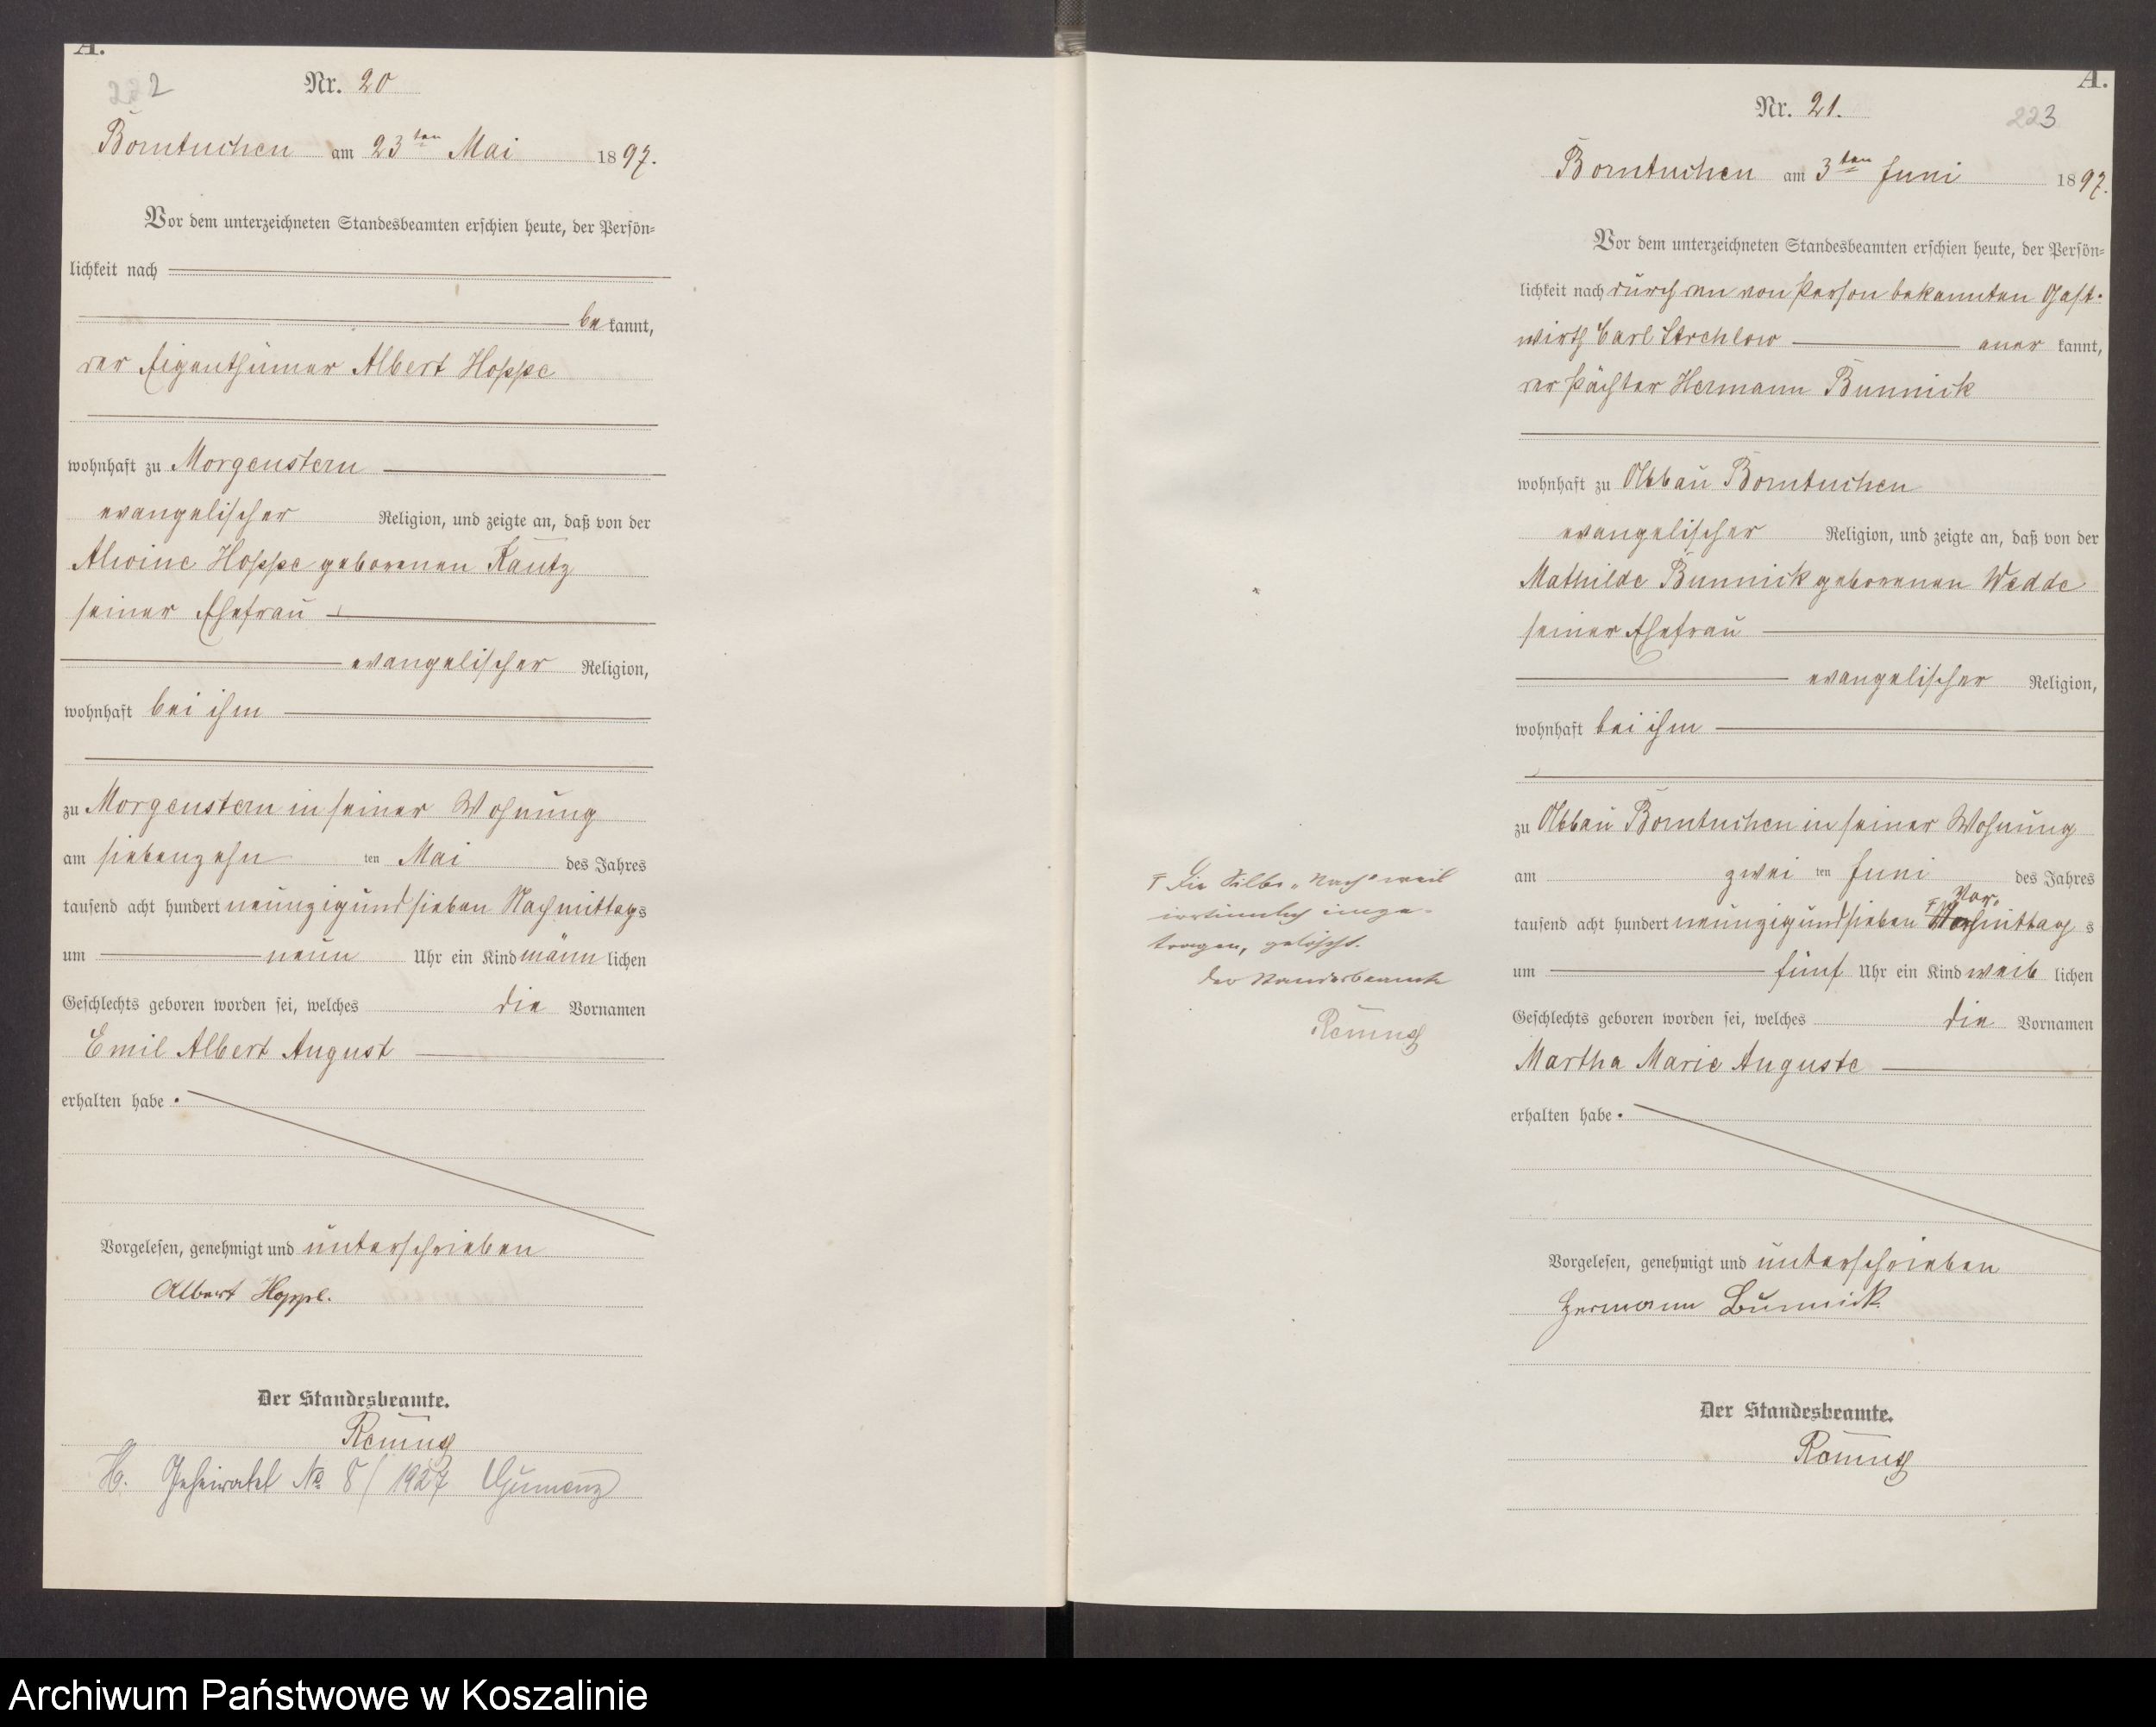 A.
222
Nr. 20
Borntuchen am 23ten Mai 1897.
Vor dem unterzeichneten Standesbeamten erschien heute, der Persön=
lichkeit nach
be kannt,
der Eigenthümer Albert Hoppe
wohnhaft zu Morgenstern
evangelischer Religion, und zeigte an, daß von der
Alwine Hoppe geborenen Kautz
seiner Ehefrau
evangelischer Religion,
wohnhaft bei ihm
zu Morgenstern in seiner Wohnung
am siebenzehn ten Mai des Jahres
tausend acht hundert neunzig und sieben Nachmittags
um neun Uhr ein Kind männ lichen
Geschlechts geboren worden sei, welches die Vornamen
Emil Albert August
erhalten habe.
Vorgelesen, genehmigt und unterschrieben
Albert Hoppe.
Der Standesbeamte.
H. Geheiratet No 8/1927
A.
223
Nr. 21.
Borntuchen am 3ten Juni 1897.
Vor dem unterzeichneten Standesbeamten erschien heute, der Persön=
lichkeit nach durch den von Person bekannten Gast-
wirth Carl Strehlow aner kannt,
der Pächter Hermann Bunnick
wohnhaft zu Abbau Borntuchen
evangelischer Religion, und zeigte an, daß von der
Mathilde Bunnick geborenen Wedde
seiner Ehefrau
evangelischer Religion,
wohnhaft bei ihm
zu Abbau Borntuchen in seiner Wohnung
am zwei ten Juni des Jahres
Vor-
tausend acht hundert neunzig und sieben Nachmittag s
um fünf Uhr ein Kind weib lichen
Geschlechts geboren worden sei, welches die Vornamen
Martha Marie Auguste
erhalten habe.
Vorgelesen, genehmigt und unterschrieben
Hermann Bunnick
Der Standesbeamte.
Die Silbe „Nach" weil
irrtümlich einge-
tragen, gelöscht.
Der Standesbeamte
Archiwum Państwowe w Koszalinie